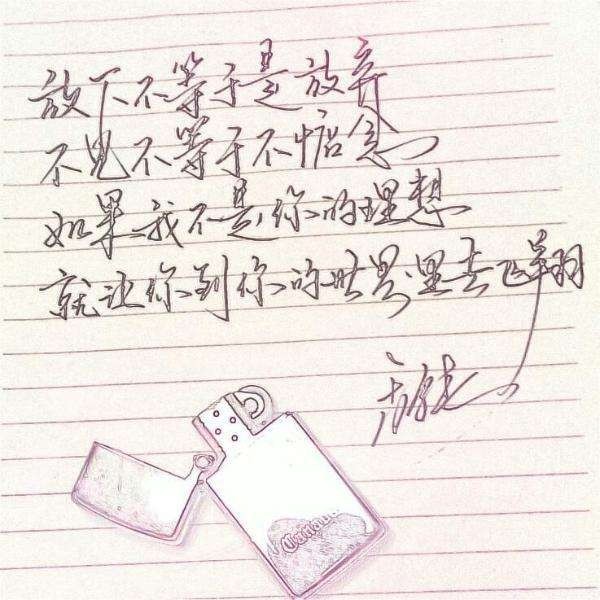 放下不等于是放弃
不见不等于不惦念
如果我不是你的理想
就让你到你的世界里去飞翔